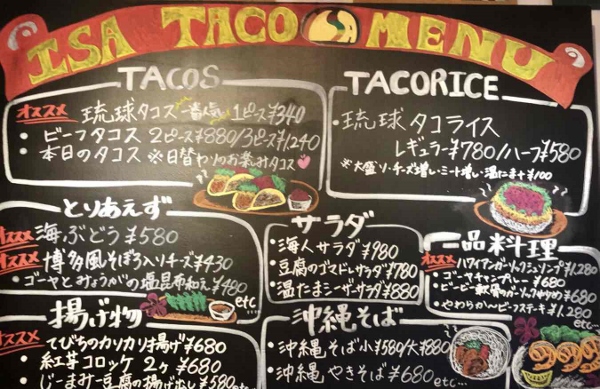 ISA TACO MENU
TACOS
オススメ 琉球タコス 一番人気 1ピース¥340
・ビーフタコス 2ピース¥880/3ピース¥1240
・本日のタコス ※日替わりのお楽しみタコス
TACORICE
・琉球タコライス
レギュラー¥780/ハーフ¥580
※大盛り・チーズ増し・ミート増し・温たま+¥100
とりあえず
オススメ 海ぶどう ¥580
オススメ 博多風そぼろ入りチーズ ¥430
・ゴーヤとみょうがの塩昆布和え ¥480
etc
サラダ
・海人サラダ ¥980
・豆腐のゴマドレサラダ ¥780
・温たまシーザーサラダ ¥880
一品料理
オススメ ハワイアンガーリックシュリンプ ¥1,280
・ゴーヤチャンプルー ¥680
・ビービー軟骨のガーリック炒め ¥680
・やわらかハンビーフステーキ ¥1,280
etc...
揚げ物
オススメ てびちのカリカリ揚げ ¥680
・紅芋コロッケ 2ヶ ¥680
・じーまみー豆腐の揚げ出し ¥580 etc...
沖縄そば
・沖縄そば 小¥580/大¥880
・沖縄やきそば ¥680 etc...